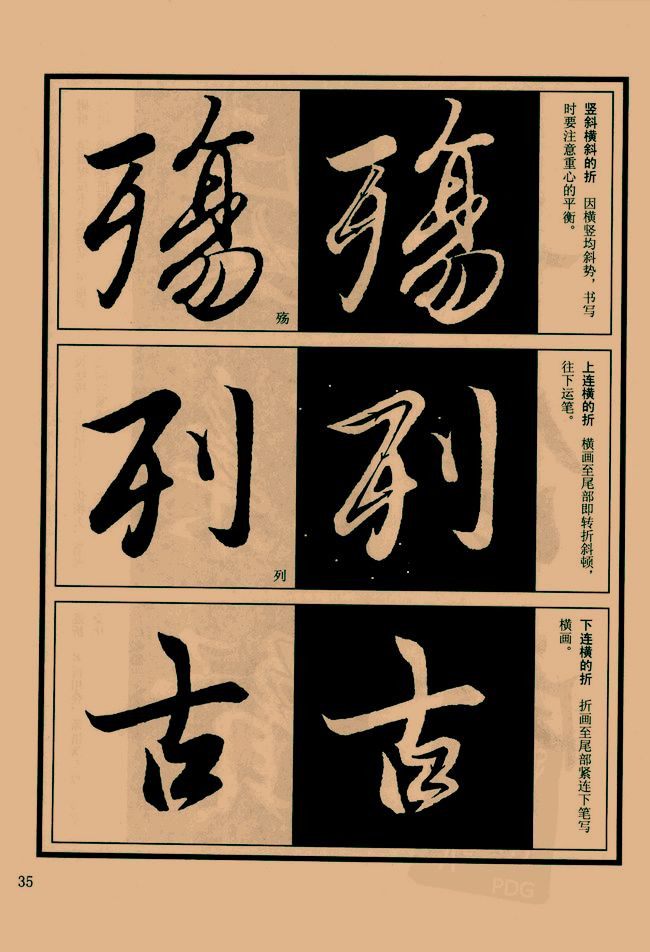 竖斜横斜的折　因横竖均斜势，书写
时要注意重心的平衡。
殇
殇
殇
上连横的折　横画至尾部即转折斜顿，
往下运笔。
列
列
列
下连横的折　折画至尾部紧连下笔写
横画。
古
古
35
PDG